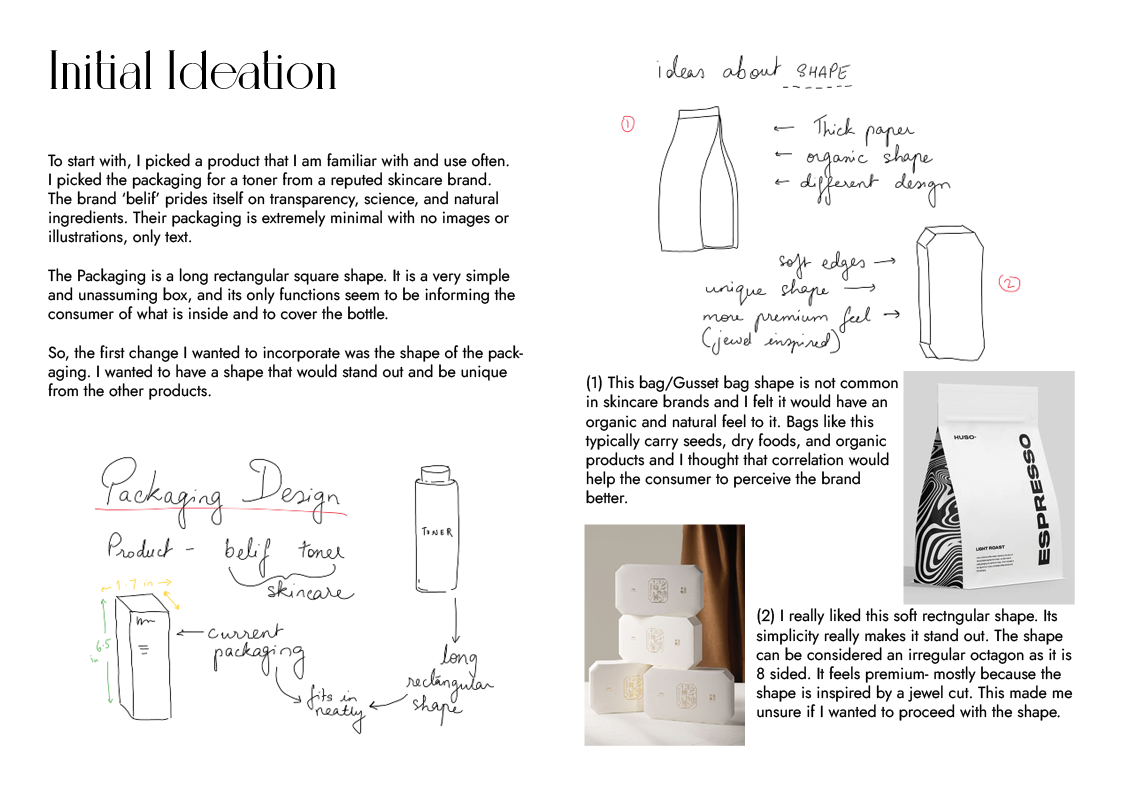 Initial Ideation
To start with, I picked a product that I am familiar with and use often.
I picked the packaging for a toner from a reputed skincare brand.
The brand ‘belif’ prides itself on transparency, science, and natural
ingredients. Their packaging is extremely minimal with no images or
illustrations, only text.
The Packaging is a long rectangular square shape. It is a very simple
and unassuming box, and its only functions seem to be informing the
consumer of what is inside and to cover the bottle.
So, the first change I wanted to incorporate was the shape of the pack-
aging. I wanted to have a shape that would stand out and be unique
from the other products.
Packaging Design
Product - belif toner
skincare
TONER
1.7 in
6.5
in
current
packaging
fits in
neatly
long
rectangular
shape
ideas about SHAPE
1
Thick paper
organic shape
different design
soft edges
unique shape
more premium feel
(jewel inspired)
2
(1) This bag/Gusset bag shape is not common
in skincare brands and I felt it would have an
organic and natural feel to it. Bags like this
typically carry seeds, dry foods, and organic
products and I thought that correlation would
help the consumer to perceive the brand
better.
HUSO·
ESPRESSO
LIGHT ROAST
(2) I really liked this soft rectngular shape. Its
simplicity really makes it stand out. The shape
can be considered an irregular octagon as it is
8 sided. It feels premium- mostly because the
shape is inspired by a jewel cut. This made me
unsure if I wanted to proceed with the shape.